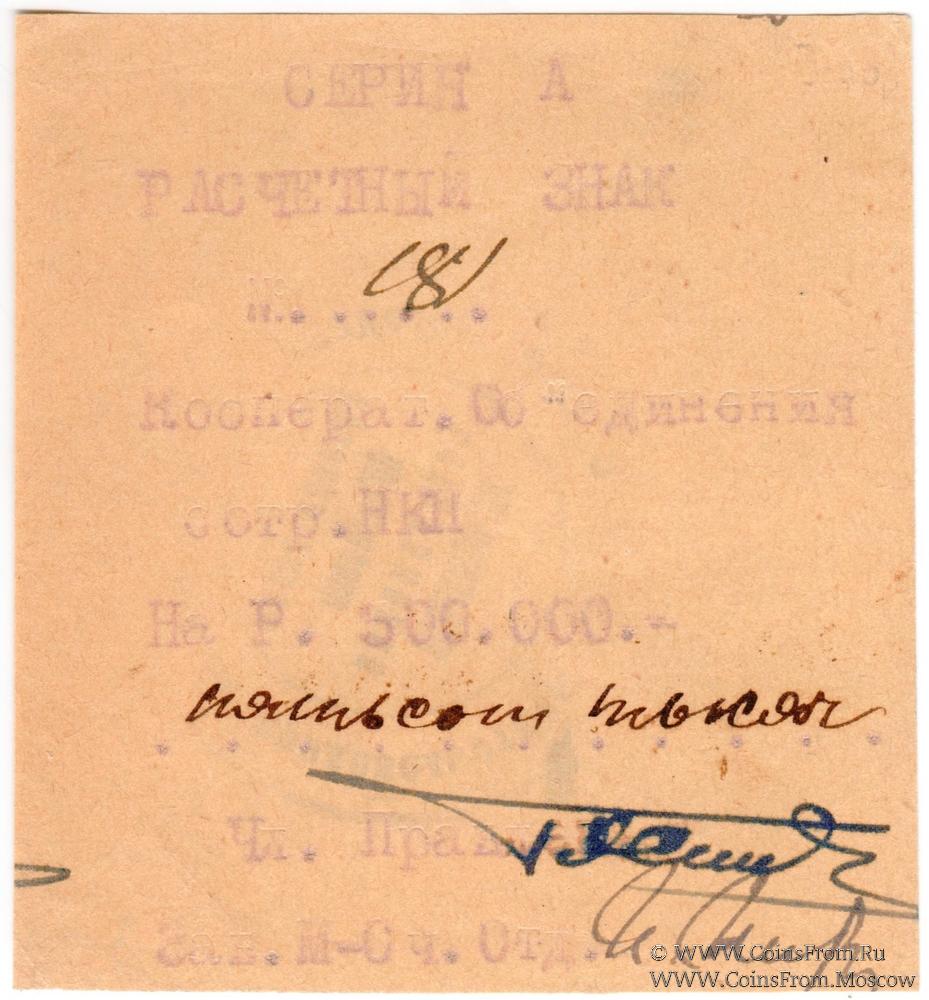 СЕРИЯ А
РАСЧЕТНЫЙ ЗНАК
№ 181
Кооперат. Об"единения
сотр. НКП
На Р. 500.000.-
пятьсот тысяч
Чл. Правлен
Зав. М-Сч. Отд.
© WWW.CoinsFrom.Ru
WWW.CoinsFrom.Moscow